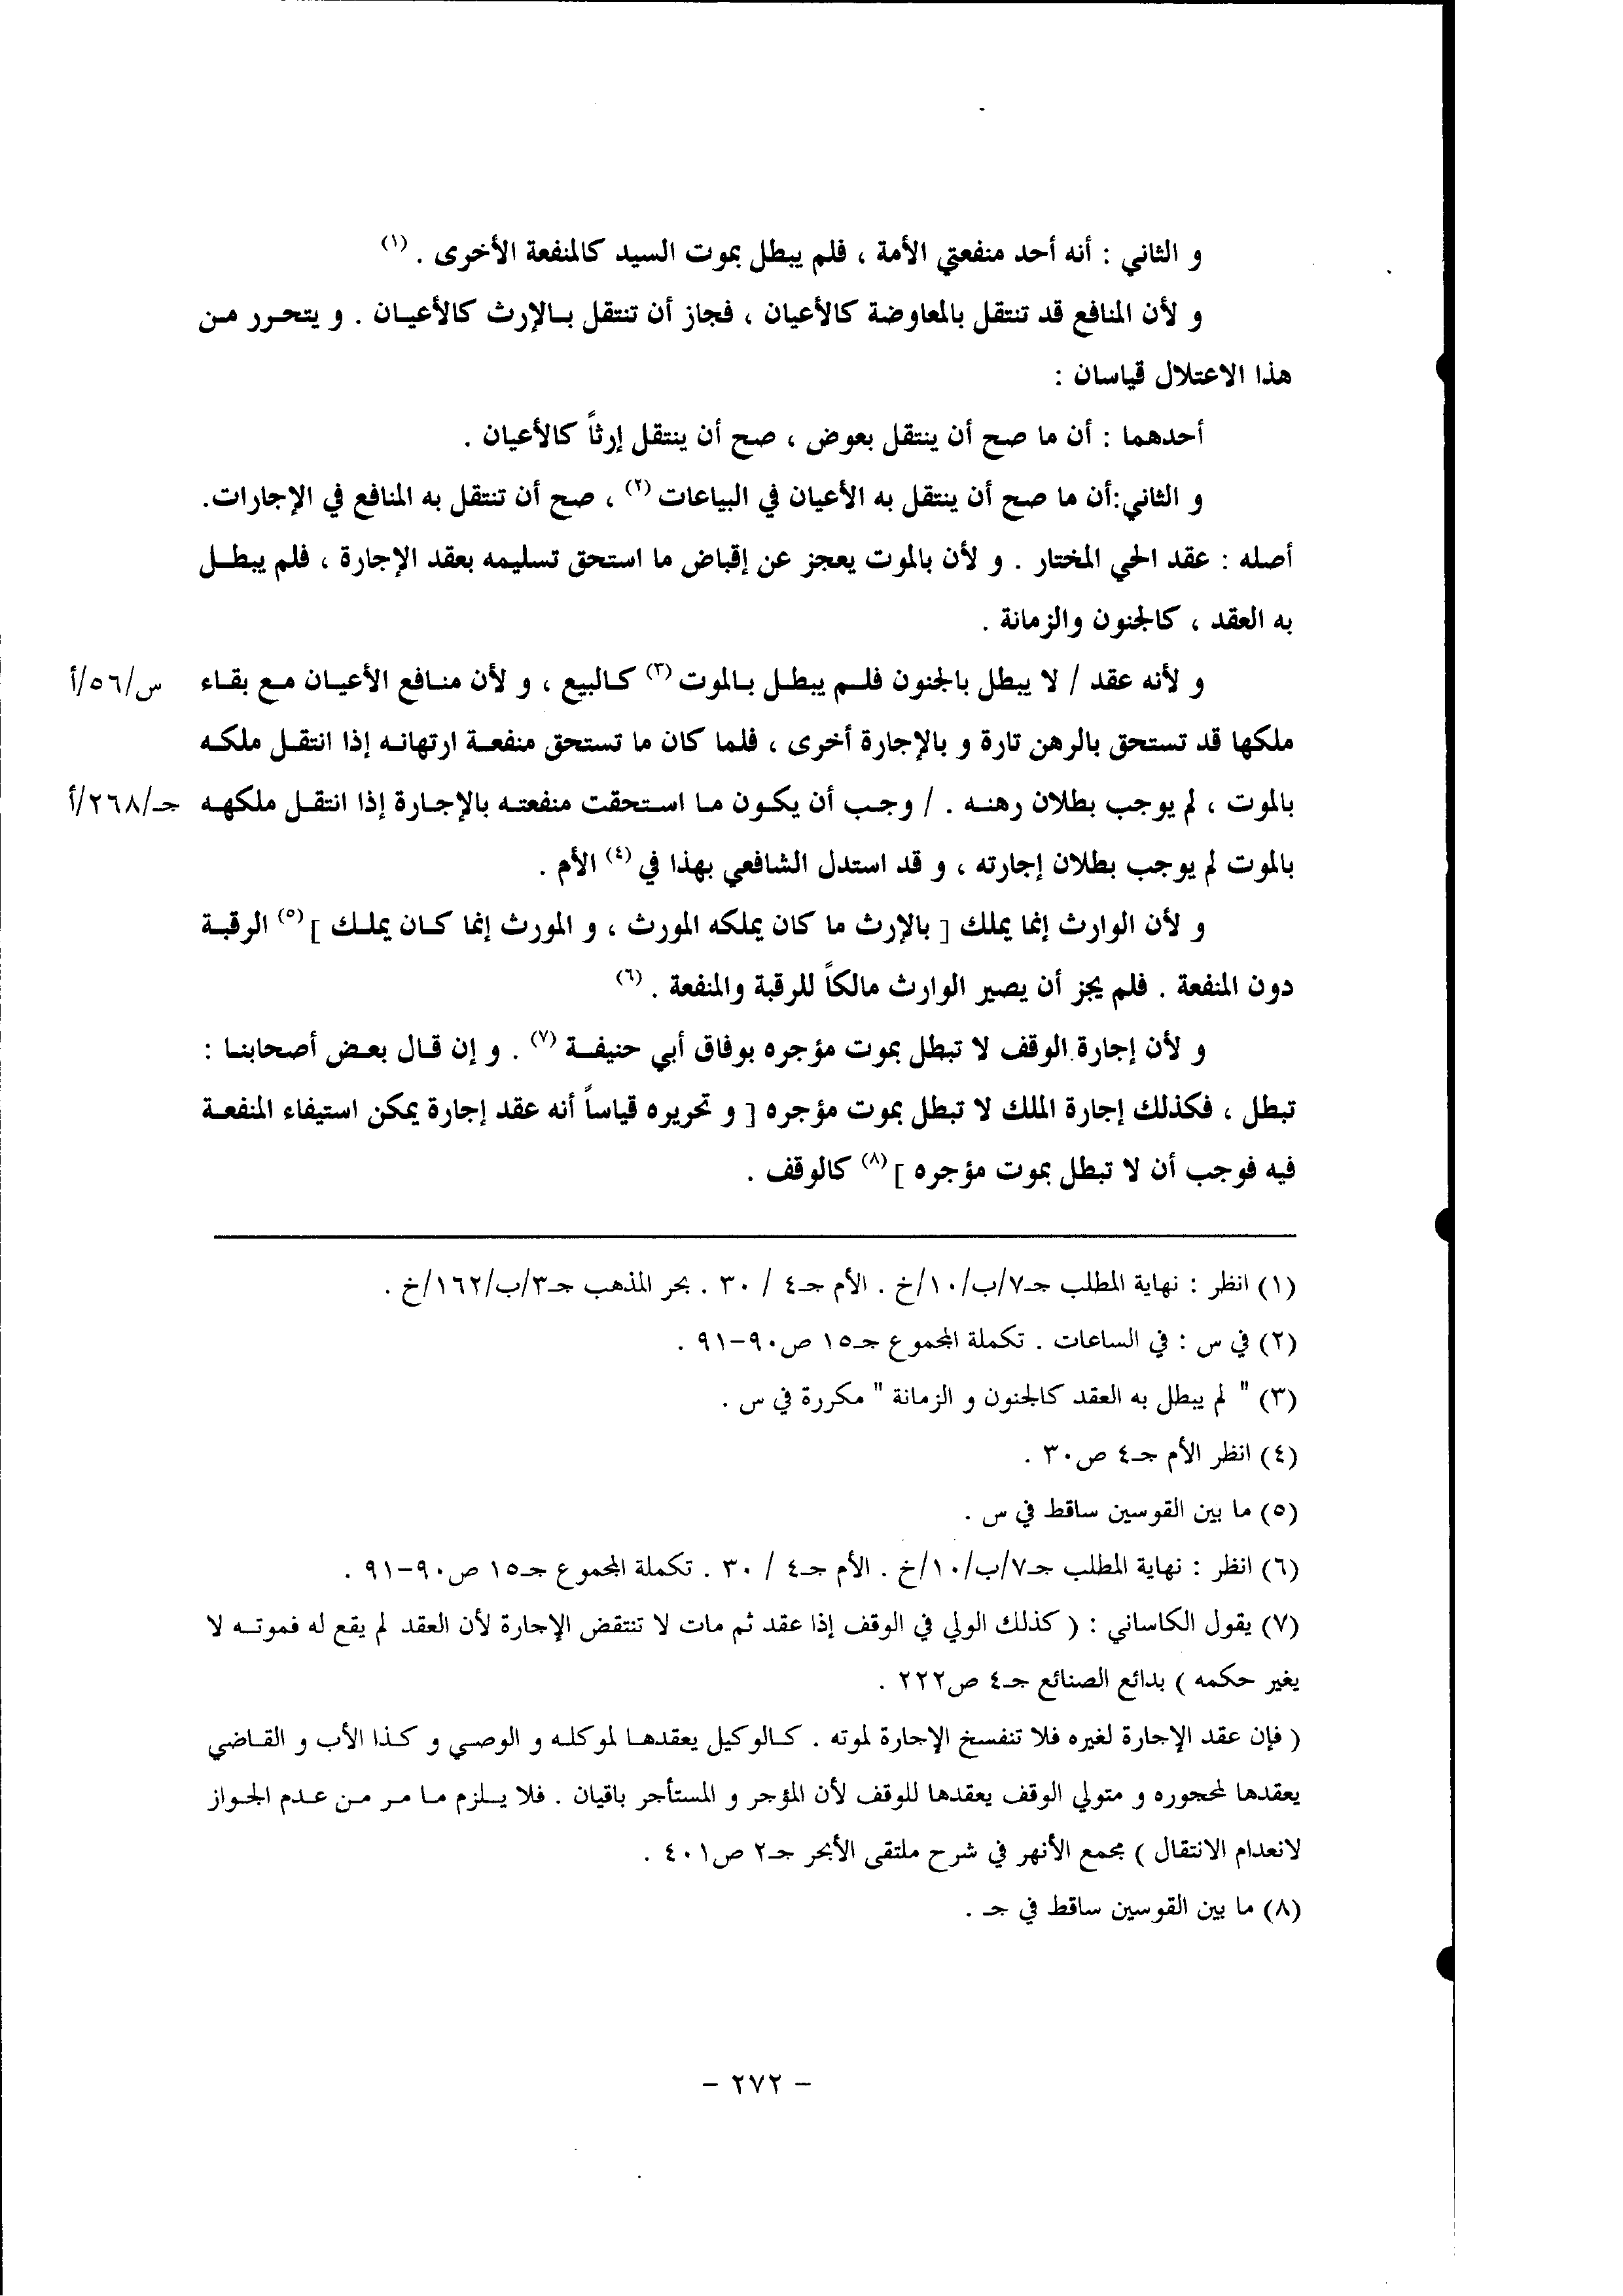 و الثاني : أنه أحد منفعتي الأمة ، فلم يبطل بموت السيد كالمنفعة الأخرى . (١)
و لأن المنافع قد تنتقل بالمعاوضة كالأعيان ، فجاز أن تنتقل بالإرث كالأعيان . و يتحرر من
هذا الاعتلال قياسان :
أحدهما : أن ما صح أن ينتقل بعوض ، صح أن ينتقل إرثاً كالأعيان .
و الثاني:أن ما صح أن ينتقل به الأعيان في البياعات (٢) ، صح أن تنتقل به المنافع في الإجارات.
أصله : عقد الحي المختار . و لأن بالموت يعجز عن إقباض ما استحق تسليمه بعقد الإجارة ، فلم يبطل
به العقد ، كالجنون والزمانة .
و لأنه عقد / لا يبطل بالجنون فلم يبطل بالموت (٣) كالبيع ، و لأن منافع الأعيان مع بقاء س/٥٦/أ
ملكها قد تستحق بالرهن تارة و بالإجارة أخرى ، فلما كان ما تستحق منفعة ارتهانه إذا انتقل ملكه
بالموت ، لم يوجب بطلان رهنه . / وجب أن يكون ما استحقت منفعته بالإجارة إذا انتقل ملكهه جـ/٢٦٨/أ
بالموت لم يوجب بطلان إجارته ، و قد استدل الشافعي بهذا في (٤) الأم .
و لأن الوارث إنما يملك [ بالإرث ما كان يملكه المورث ، و المورث إنما كان يملك ] (٥) الرقبة
دون المنفعة . فلم يجز أن يصير الوارث مالكاً للرقبة والمنفعة . (٦)
و لأن إجارة الوقف لا تبطل بموت مؤجره بوفاق أبي حنيفة (٧) . و إن قال بعض أصحابنا :
تبطل ، فكذلك إجارة الملك لا تبطل بموت مؤجره [ و تحريره قياساً أنه عقد إجارة يمكن استيفاء المنفعة
فيه فوجب أن لا تبطل بموت مؤجره ] (٨) كالوقف .
(١) انظر : نهاية المطلب جـ٧/ب/١٠/خ . الأم جـ٤ / ٣٠ . بحر المذهب جـ٣/ب/١٦٢/خ .
(٢) في س : في الساعات . تكملة المجموع جـ١٥ ص٩٠-٩١ .
(٣) " لم يبطل به العقد كالجنون و الزمانة " مكررة في س .
(٤) انظر الأم جـ٤ ص٣٠ .
(٥) ما بين القوسين ساقط في س .
(٦) انظر : نهاية المطلب جـ٧/ب/١٠/خ . الأم جـ٤ / ٣٠ . تكملة المجموع جـ١٥ ص٩٠-٩١ .
(٧) يقول الكاساني : ( كذلك الولي في الوقف إذا عقد ثم مات لا تنتقض الإجارة لأن العقد لم يقع له فموته لا
يغير حكمه ) بدائع الصنائع جـ٤ ص٢٢٢ .
( فإن عقد الإجارة لغيره فلا تنفسخ الإجارة لموته . كالوكيل يعقدها لموكله و الوصي و كذا الأب و القاضي
يعقدها لمحجوره و متولي الوقف يعقدها للوقف لأن المؤجر و المستأجر باقيان . فلا يلزم ما مر من عدم الجواز
لانعدام الانتقال ) مجمع الأنهر في شرح ملتقى الأبحر جـ٢ ص٤٠١ .
(٨) ما بين القوسين ساقط في جـ .
- ٢٧٢ -